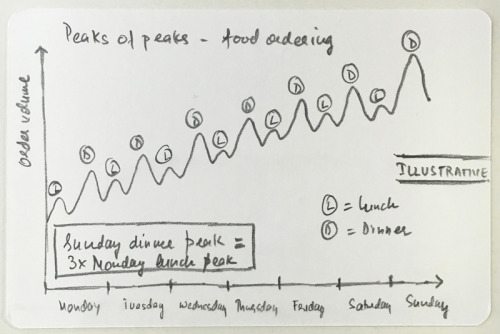 Peaks of peaks - food ordering
Order volume
L
D
L
D
L
D
L
D
L
D
L
D
L
D
ILLUSTRATIVE
L = Lunch
D = Dinner
Sunday dinner peak =
3x Monday lunch peak
Monday Tuesday Wednesday Thursday Friday Saturday Sunday